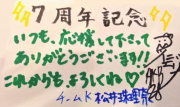 7周年記念
いつも、応援して下さって
ありがとうございます!!
これからもよろしくね♡
チームK 松井珠理奈